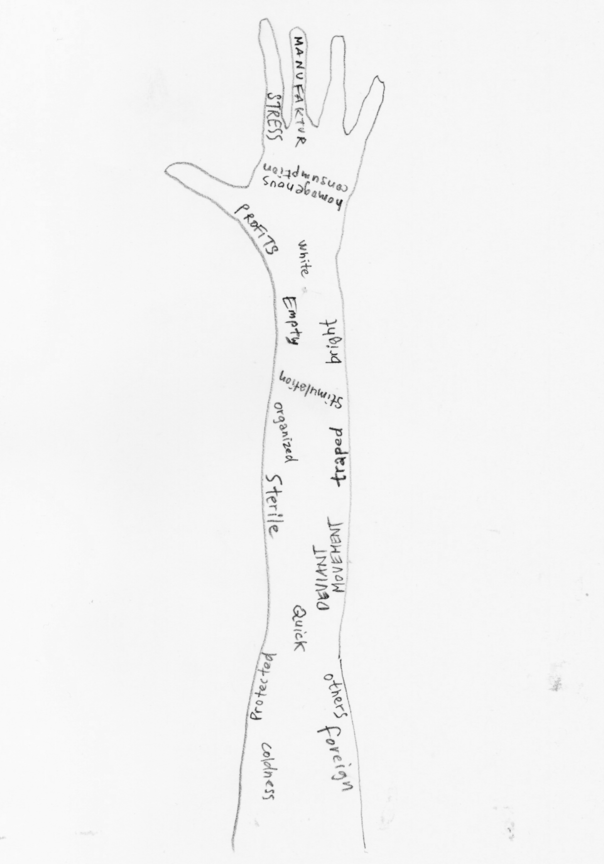 MANUFAKTUR
STRESS
homogenous
consumption
PROFITS
white
Empty
bright
stimulation
organized
traped
Sterile
DEVIANT
MOVEMENT
Quick
Protected
others
foreign
coldness